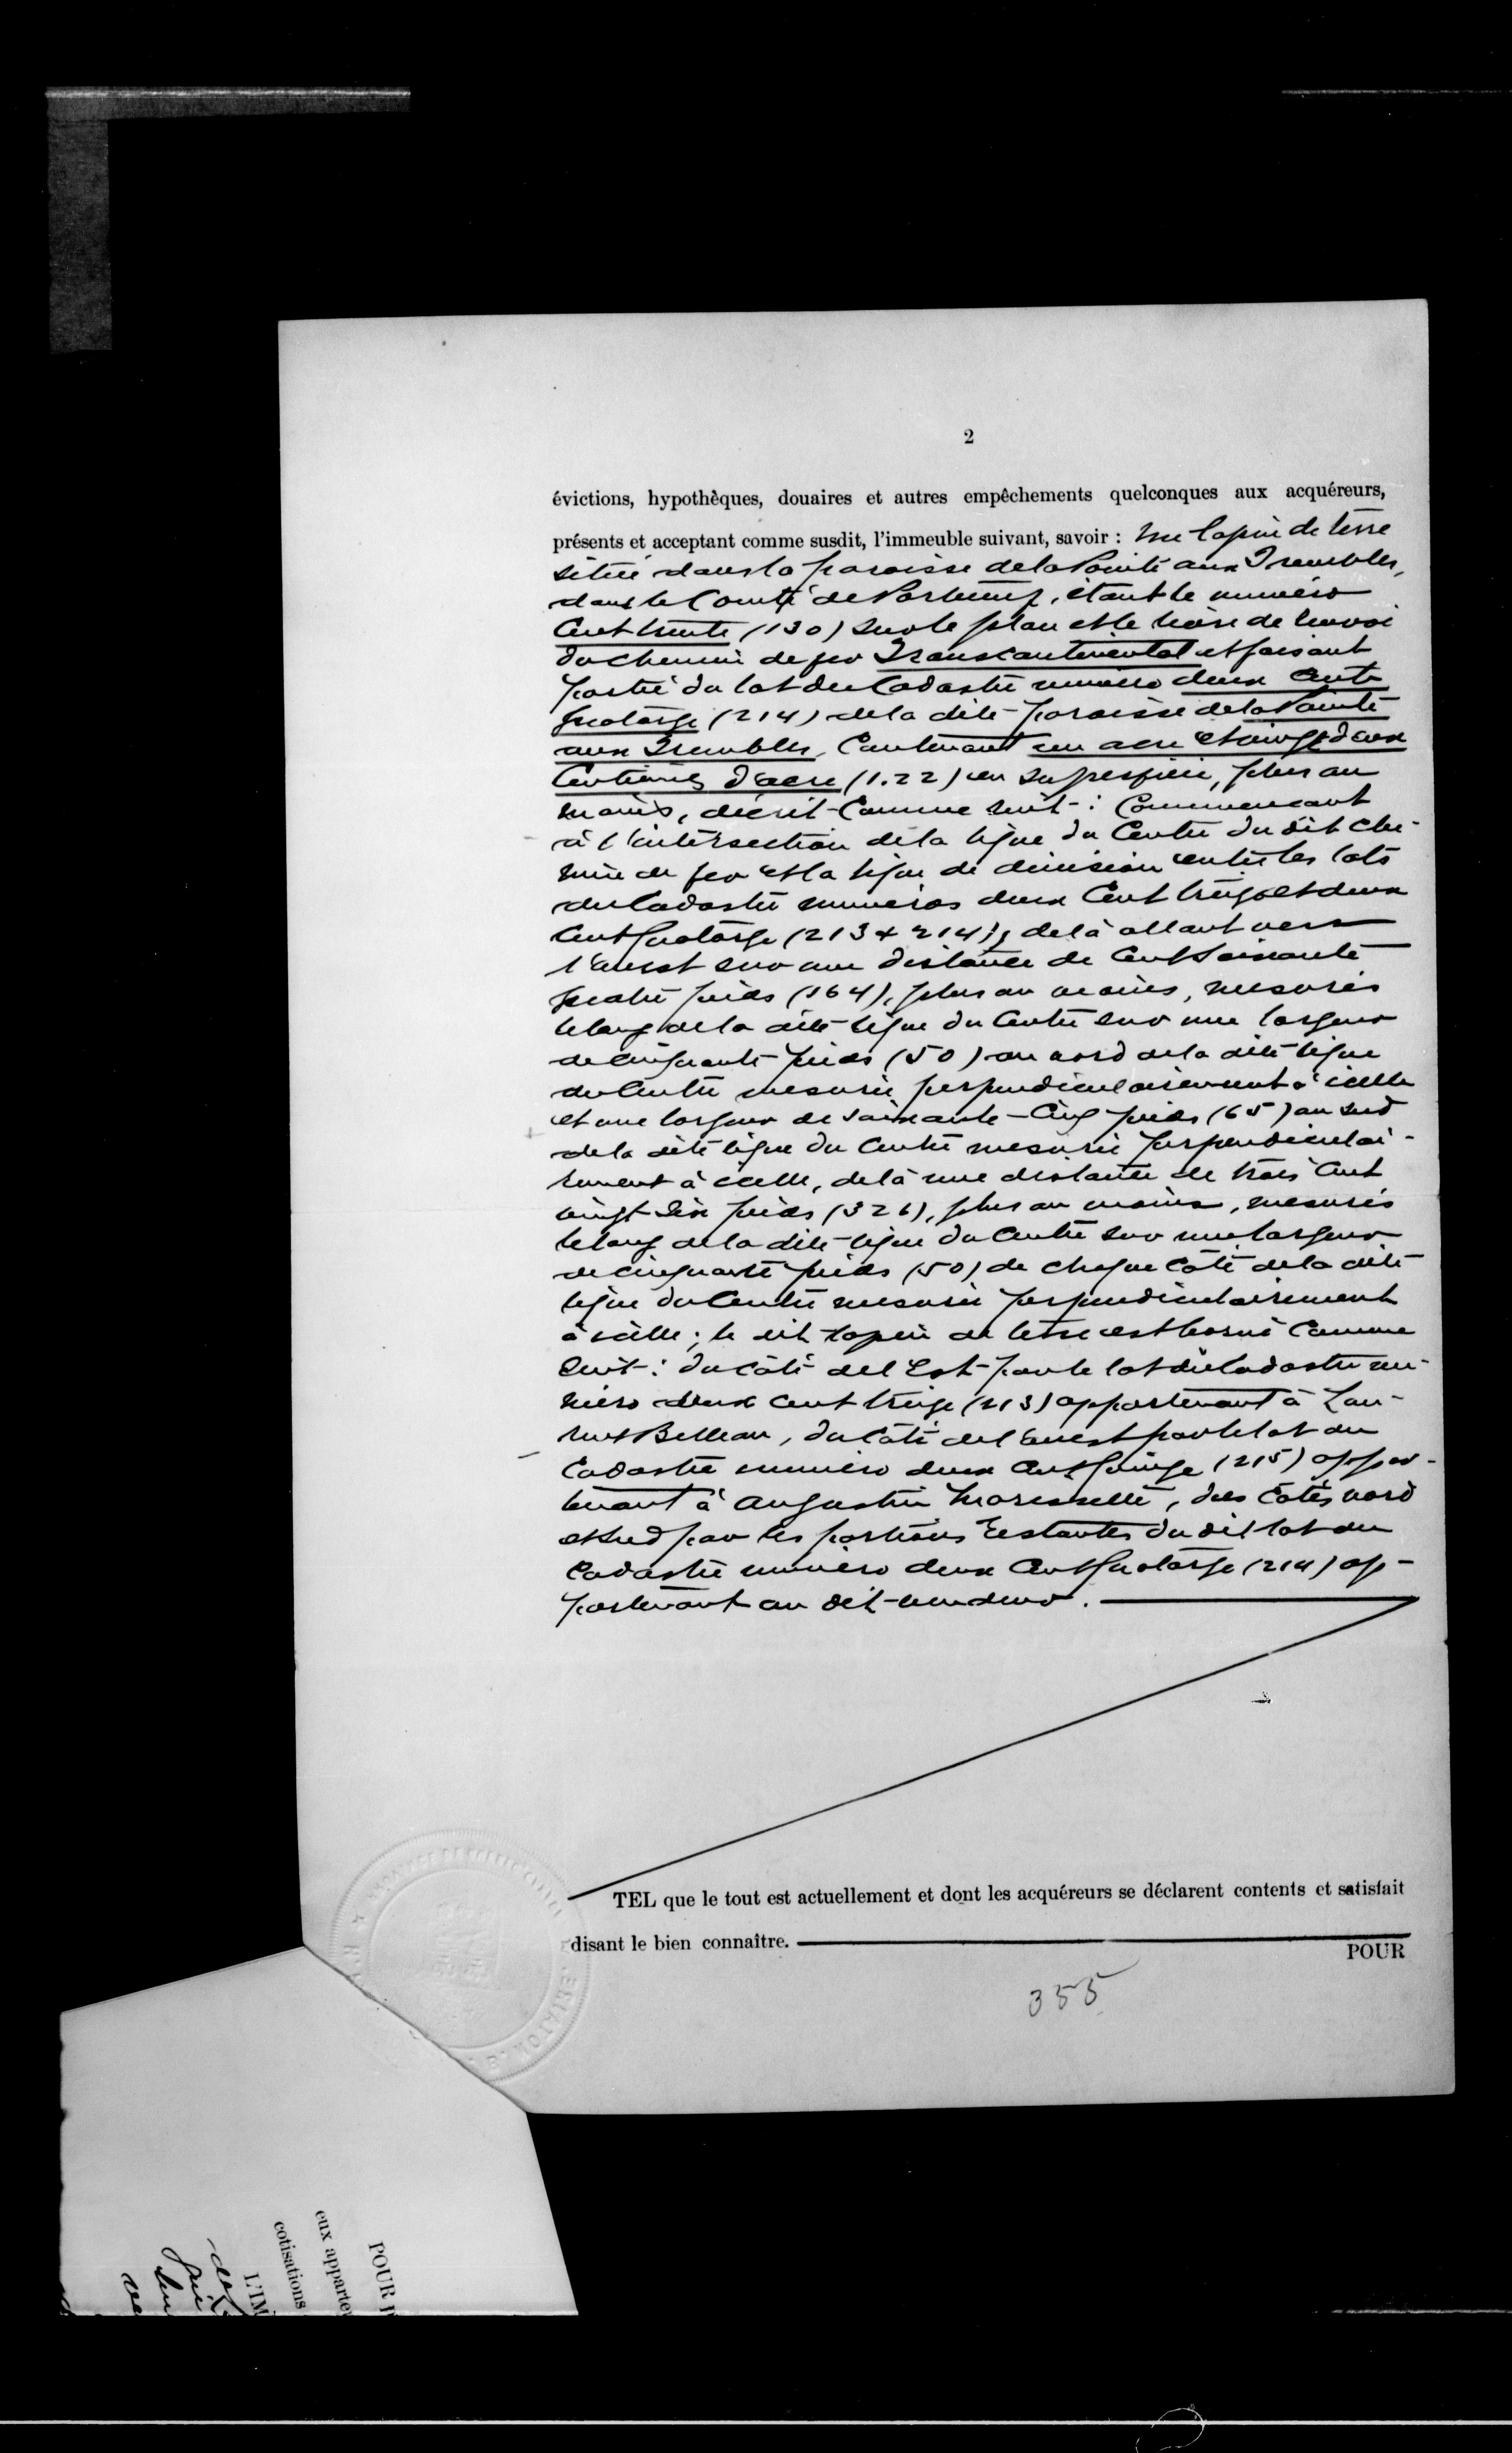 2
évictions, hypothèques, douaires et autres empêchements quelconques aux acquéreurs,
présents et acceptant comme susdit, l'immeuble suivant, savoir : Un lopin de terre
situé dans la paroisse de la Pointe aux Trembles,
dans le Comté de Portneuf, étant le numéro
Cent trente (130) sur le plan et le livre de renvoi
du chemin de fer Transcontinental et faisant
partie du lot du Cadastre numéro deux Cent
quatorze (214) de la dite paroisse de la Pointe
aux Trembles, Contenant un acre et vingt deux
Centièmes d'acre (1.22) en superficie, plus ou
moins, décrit Comme suit : Commençant
à l'intersection de la ligne du Centre du dit che-
min de fer et la ligne de division entre les lots
du Cadastre numéros deux Cent treize et deux
Cent quatorze (213 & 214), de là allant vers
l'ouest sur une distance de Cent soixante
quatre pieds (164), plus ou moins, mesurés
le long de la dite ligne du Centre sur une largeur
de cinquante pieds (50) au nord de la dite ligne
du Centre mesurée perpendiculairement à icelle
et une largeur de soixante-Cinq pieds (65) au sud
de la dite ligne du Centre mesurée perpendiculai-
rement à icelle, de là une distance de trois Cent
vingt six pieds (326), plus ou moins, mesurés
le long de la dite ligne du Centre sur une largeur
de cinquante pieds (50) de chaque Côté de la dite
ligne du Centre mesurée perpendiculairement
à icelle ; le dit lopin de terre est borné Comme
suit : du Côté de l'Est par le lot du Cadastre nu-
méro deux cent treize (213) appartenant à Lau-
rent Belleau, du Côté de l'ouest par le lot du
Cadastre numéro deux Cent quinze (215) appar-
tenant à Augustin, des Côtés nord
et sud par les portions restantes du dit lot du
Cadastre numéro deux Cent quatorze (214) ap-
partenant au dit vendeur.
TEL que le tout est actuellement et dont les acquéreurs se déclarent contents et satisfait
disant le bien connaître.
POUR
355
POUR
eux apparte
cotisations
L'IM